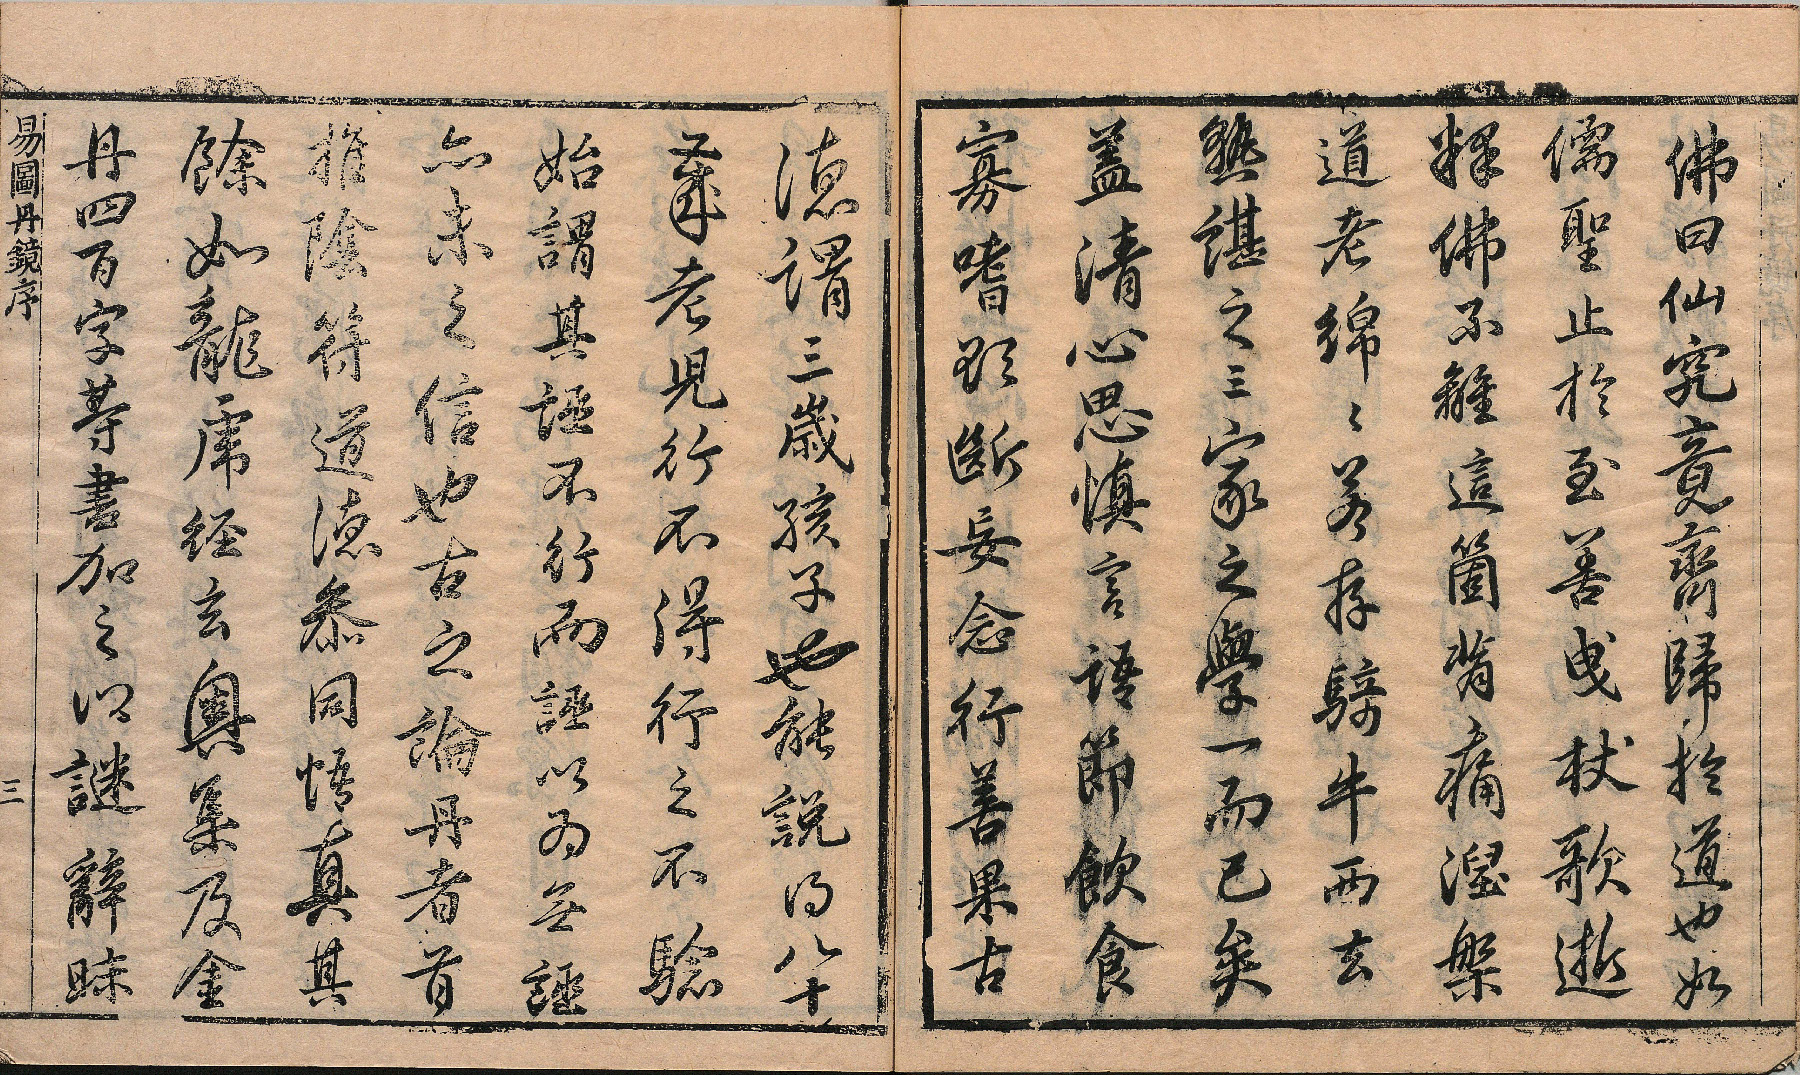 佛曰仙究竟齊歸於道也如
儒聖止於至善曳杖歌逝
釋佛不離這箇背痛涅槃
道老綿〻若存騎牛西去
熟諶之三家之學一而已矣
蓋清心思慎言語節飲食
寡嗜欲斷妄念行善果古
德謂三歲孩子也能說得八十
歲老兒行不得行之不驗
始謂其誣不行而誣以為無誣
亦未之信也古之論丹者首
推陰符道德參同悟真其
餘如龍虎經玄奧集及金
丹四百字等書加之以謎辭昧
易圖丹鏡序 三